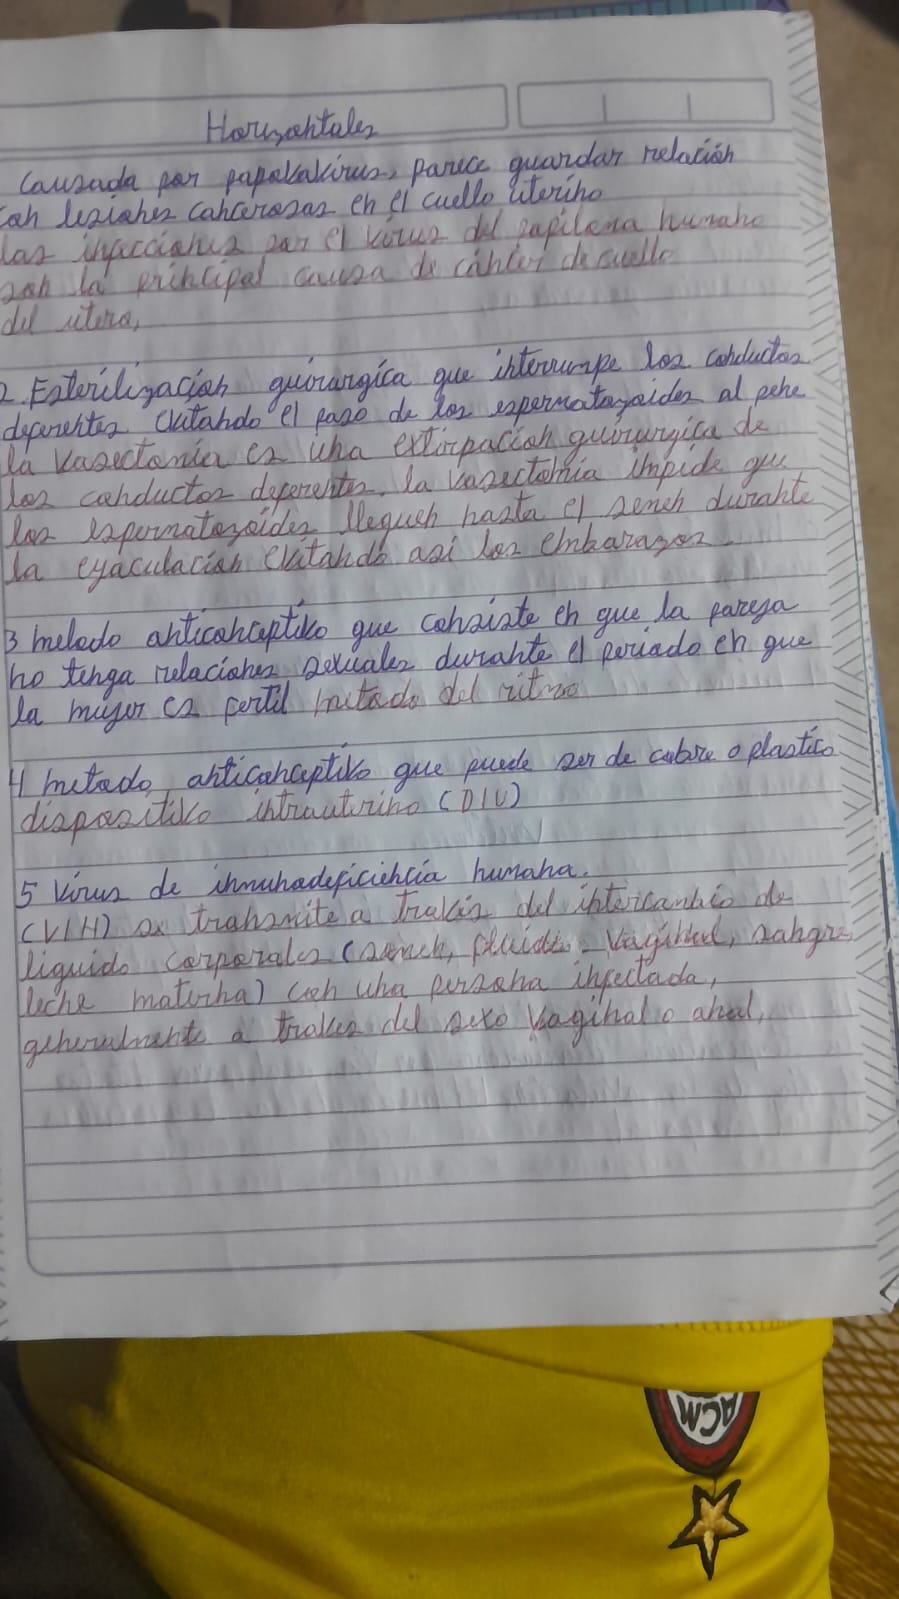 Horizontales
Causada por papovavirus, parece guardar relación
con lesiones cancerosas en el cuello uterino
las infecciones por el virus del papiloma humano
son la principal causa de cáncer de cuello
del utero,
2. Esterilización quirurgíca que interrumpe los conductos
deferentes evitando el paso de los espermatozoides al pene
la vasectomía es una extirpación quirurgíca de
los conductos deferentes, la vasectomia impide que
los espermatozoides lleguen hasta el semen durante
la eyaculación evitando asi los embarazos.
3 metodo anticonceptivo que consiste en que la pareja
no tenga relaciones sexuales durante el periodo en que
la mujer es fertil metodo del ritmo
4 metodo anticonceptivo que puede ser de cobre o plastico
dispositivo intrauterino (DIU)
5 Virus de inmunodeficiencia humana.
(VIH) se transmite a travís del intercambio de
liquido corporales (semen, fluido vaginal, sangre
leche materna) con una persona infectada,
generalmente a traves del sexo vaginal o anal,
ACM